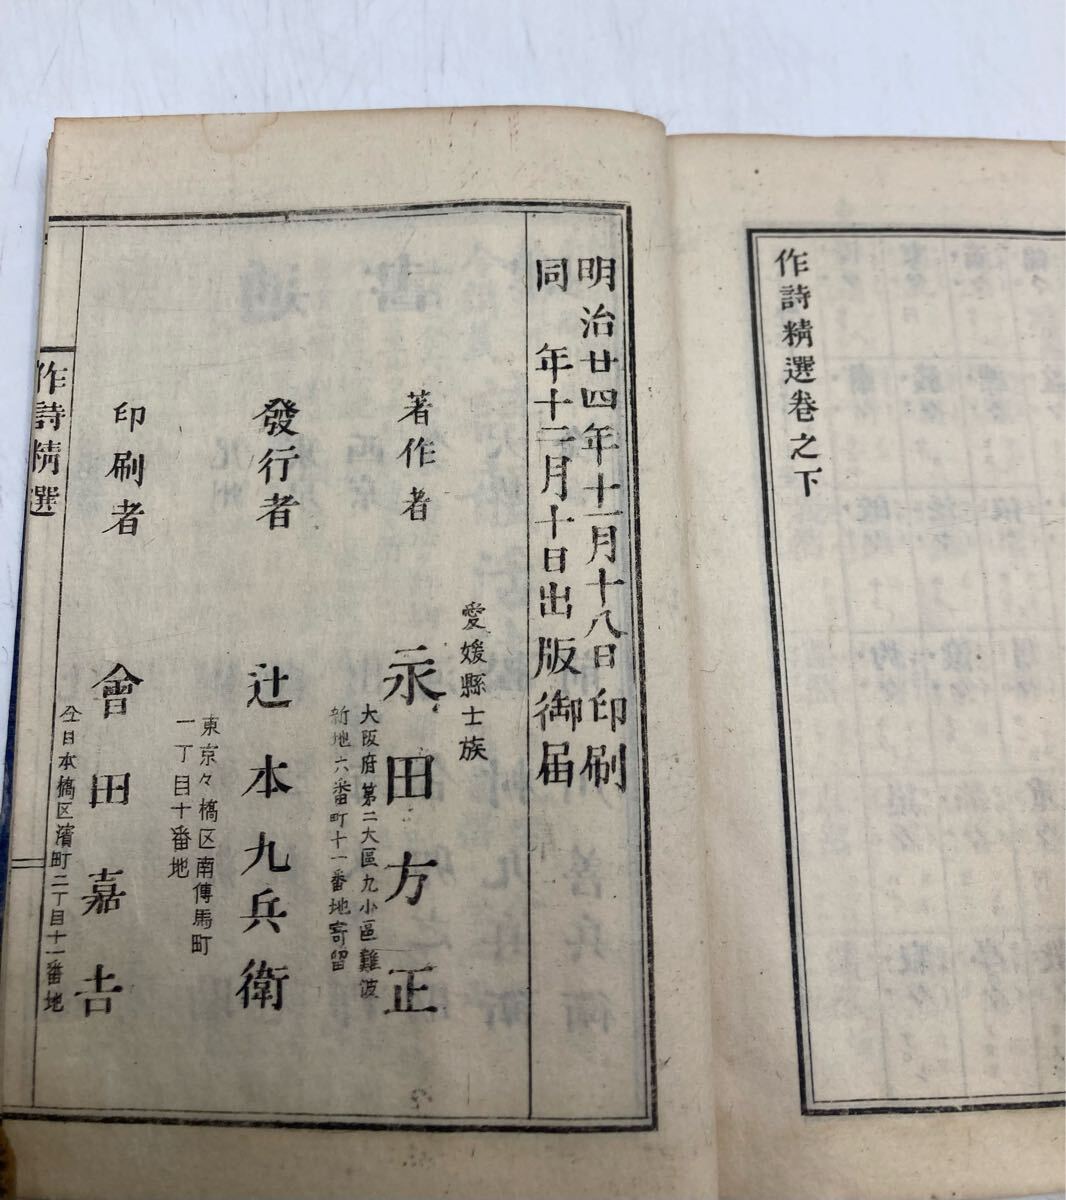 作詩精選卷之下
明治廿四年十一月十八日印刷
同年十二月十日出版御届
愛媛縣士族
著作者 永田方正
大阪府第二大區九小區難波
新地六番町十一番地寄留
發行者 辻本九兵衛
東京々橋区南傳馬町
一丁目十番地
印刷者 會田嘉吉
仝日本橋区濱町二丁目十一番地
作詩精選